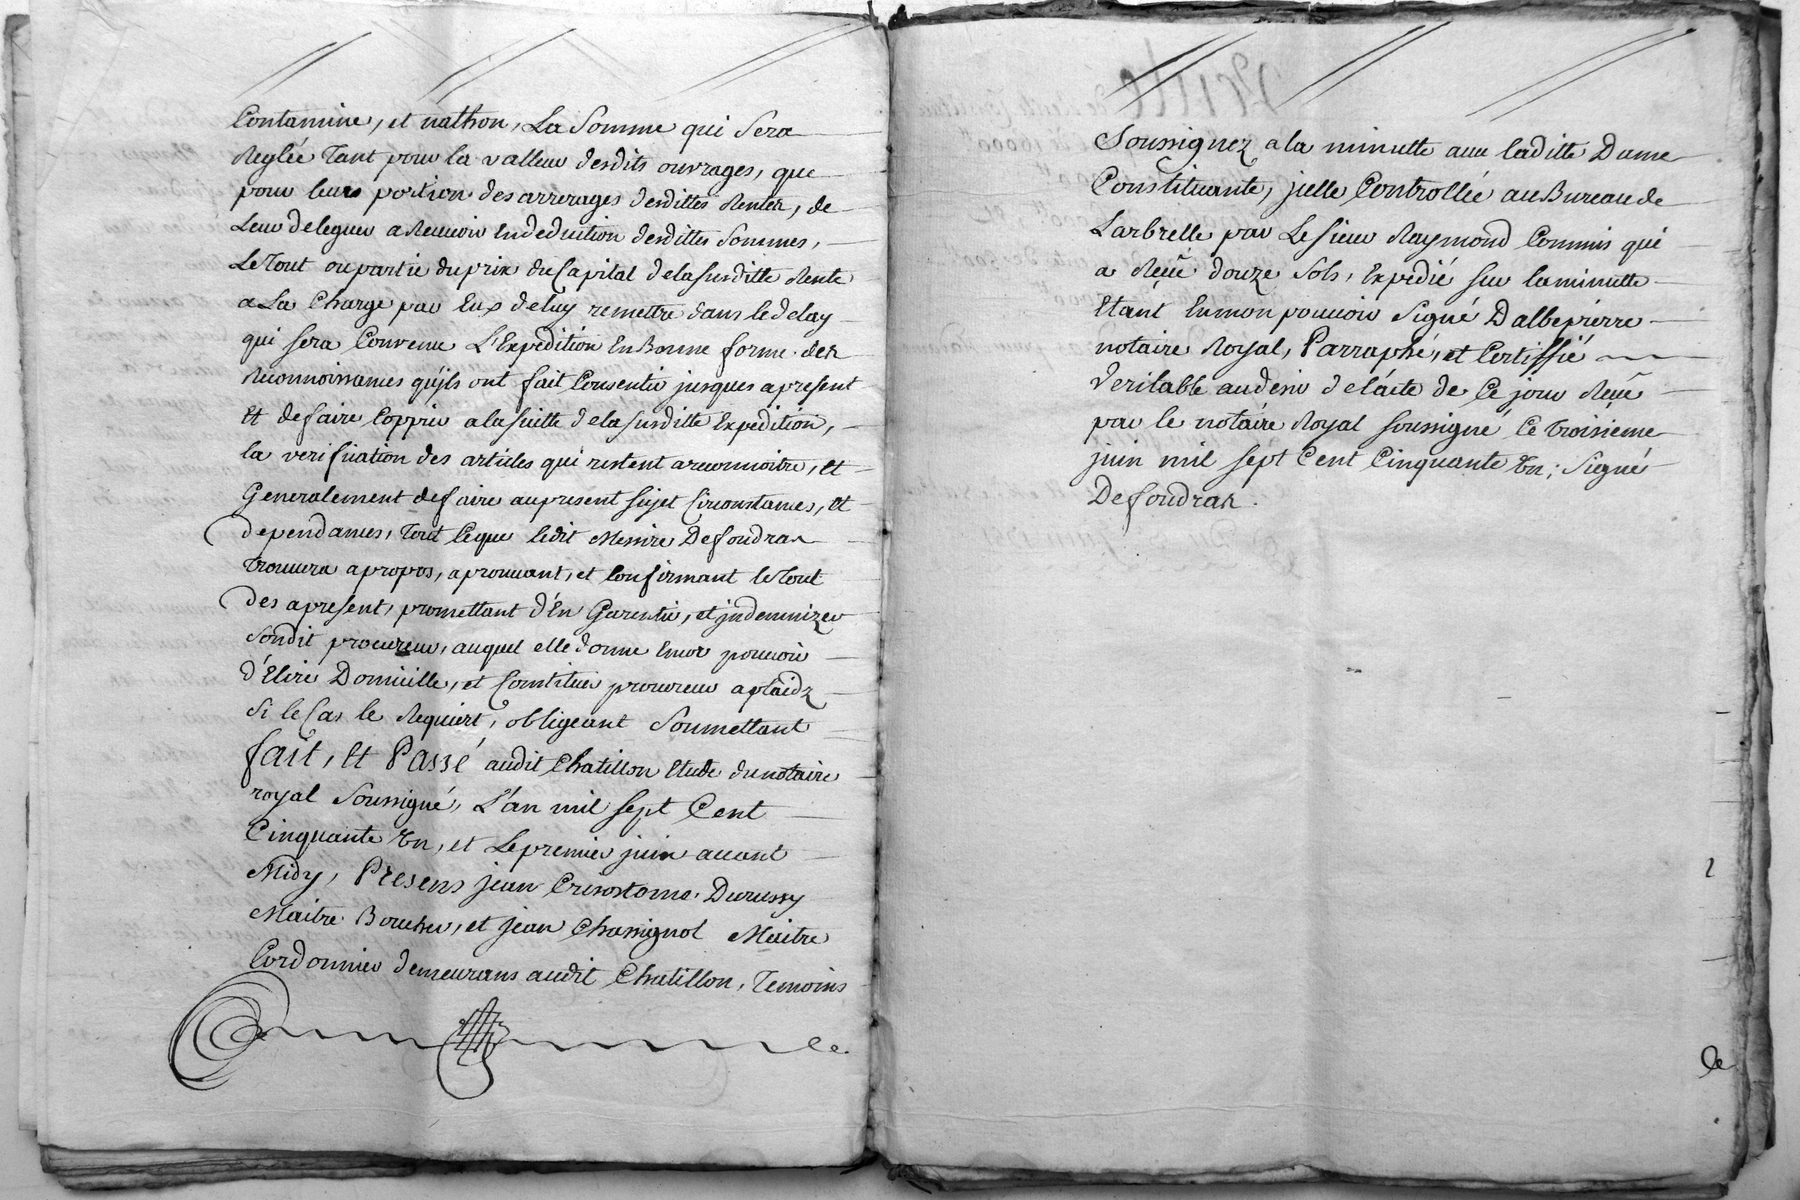 Contamine, et nathon, La Somme qui Sera
Reglée Tant pour la valleur desdits ouvrages, que
pour leurs portion des arrerages desdittes Rentes, de
Leur deleguer a Recevoir En deduition desdittes Sommes,
Le Tout ou partie du prix du Capital de la Susditte Rente
a La Charge par Eux de luy remettre dans le delay
qui sera Convenu L'Expedition En Bonne forme des
Reconnoissances qu'jls ont fait Consentir jusques a present
Et de faire Coppier a la suitte de la Susditte Expedition,
la verification des articles qui restent a reconnoitre, Et
Generalement de faire au present sujet Circonstances, Et
dependances, Tout Ceque ledit Messire De foudras
Trouvera a propos, aprouvant, et Confirmant le Tout
des a present, promettant d'En Garentir, et jndemnizer
Sondit procureur, auquel elle donne Encor pouvoir
d'Elire Domicille, et Constituer procureur a plaidz
Si le Cas le Requiert, obligeant Soumettant
fait, Et Passé audit Chatillon Etude du notaire
royal Soussigné, L'an mil sept Cent
Cinquante Un, et Le premier juin avant
Midy, Presens jean Crisostome Durussy
Maitre Boucher, et jean Chassignol Maitre
Cordonnier demeurans audit Chatillon, Temoins
Soussignez a la minutte avec laditte Dame
Constituante, jcelle Controllée au Bureau de
Larbrelle par Le sieur Raymond Commis qui
a Reçu douze Sols, Expedié sur la minutte
Etant En mon pouvoir Signé Dalbepierre
notaire Royal, Parraphé, et Certiffié
veritable au desir de l'acte de Ce jour Reçu
par le notaire Royal soussigné Ce troisieme
juin mil sept Cent Cinquante Un; Signé
De foudras.